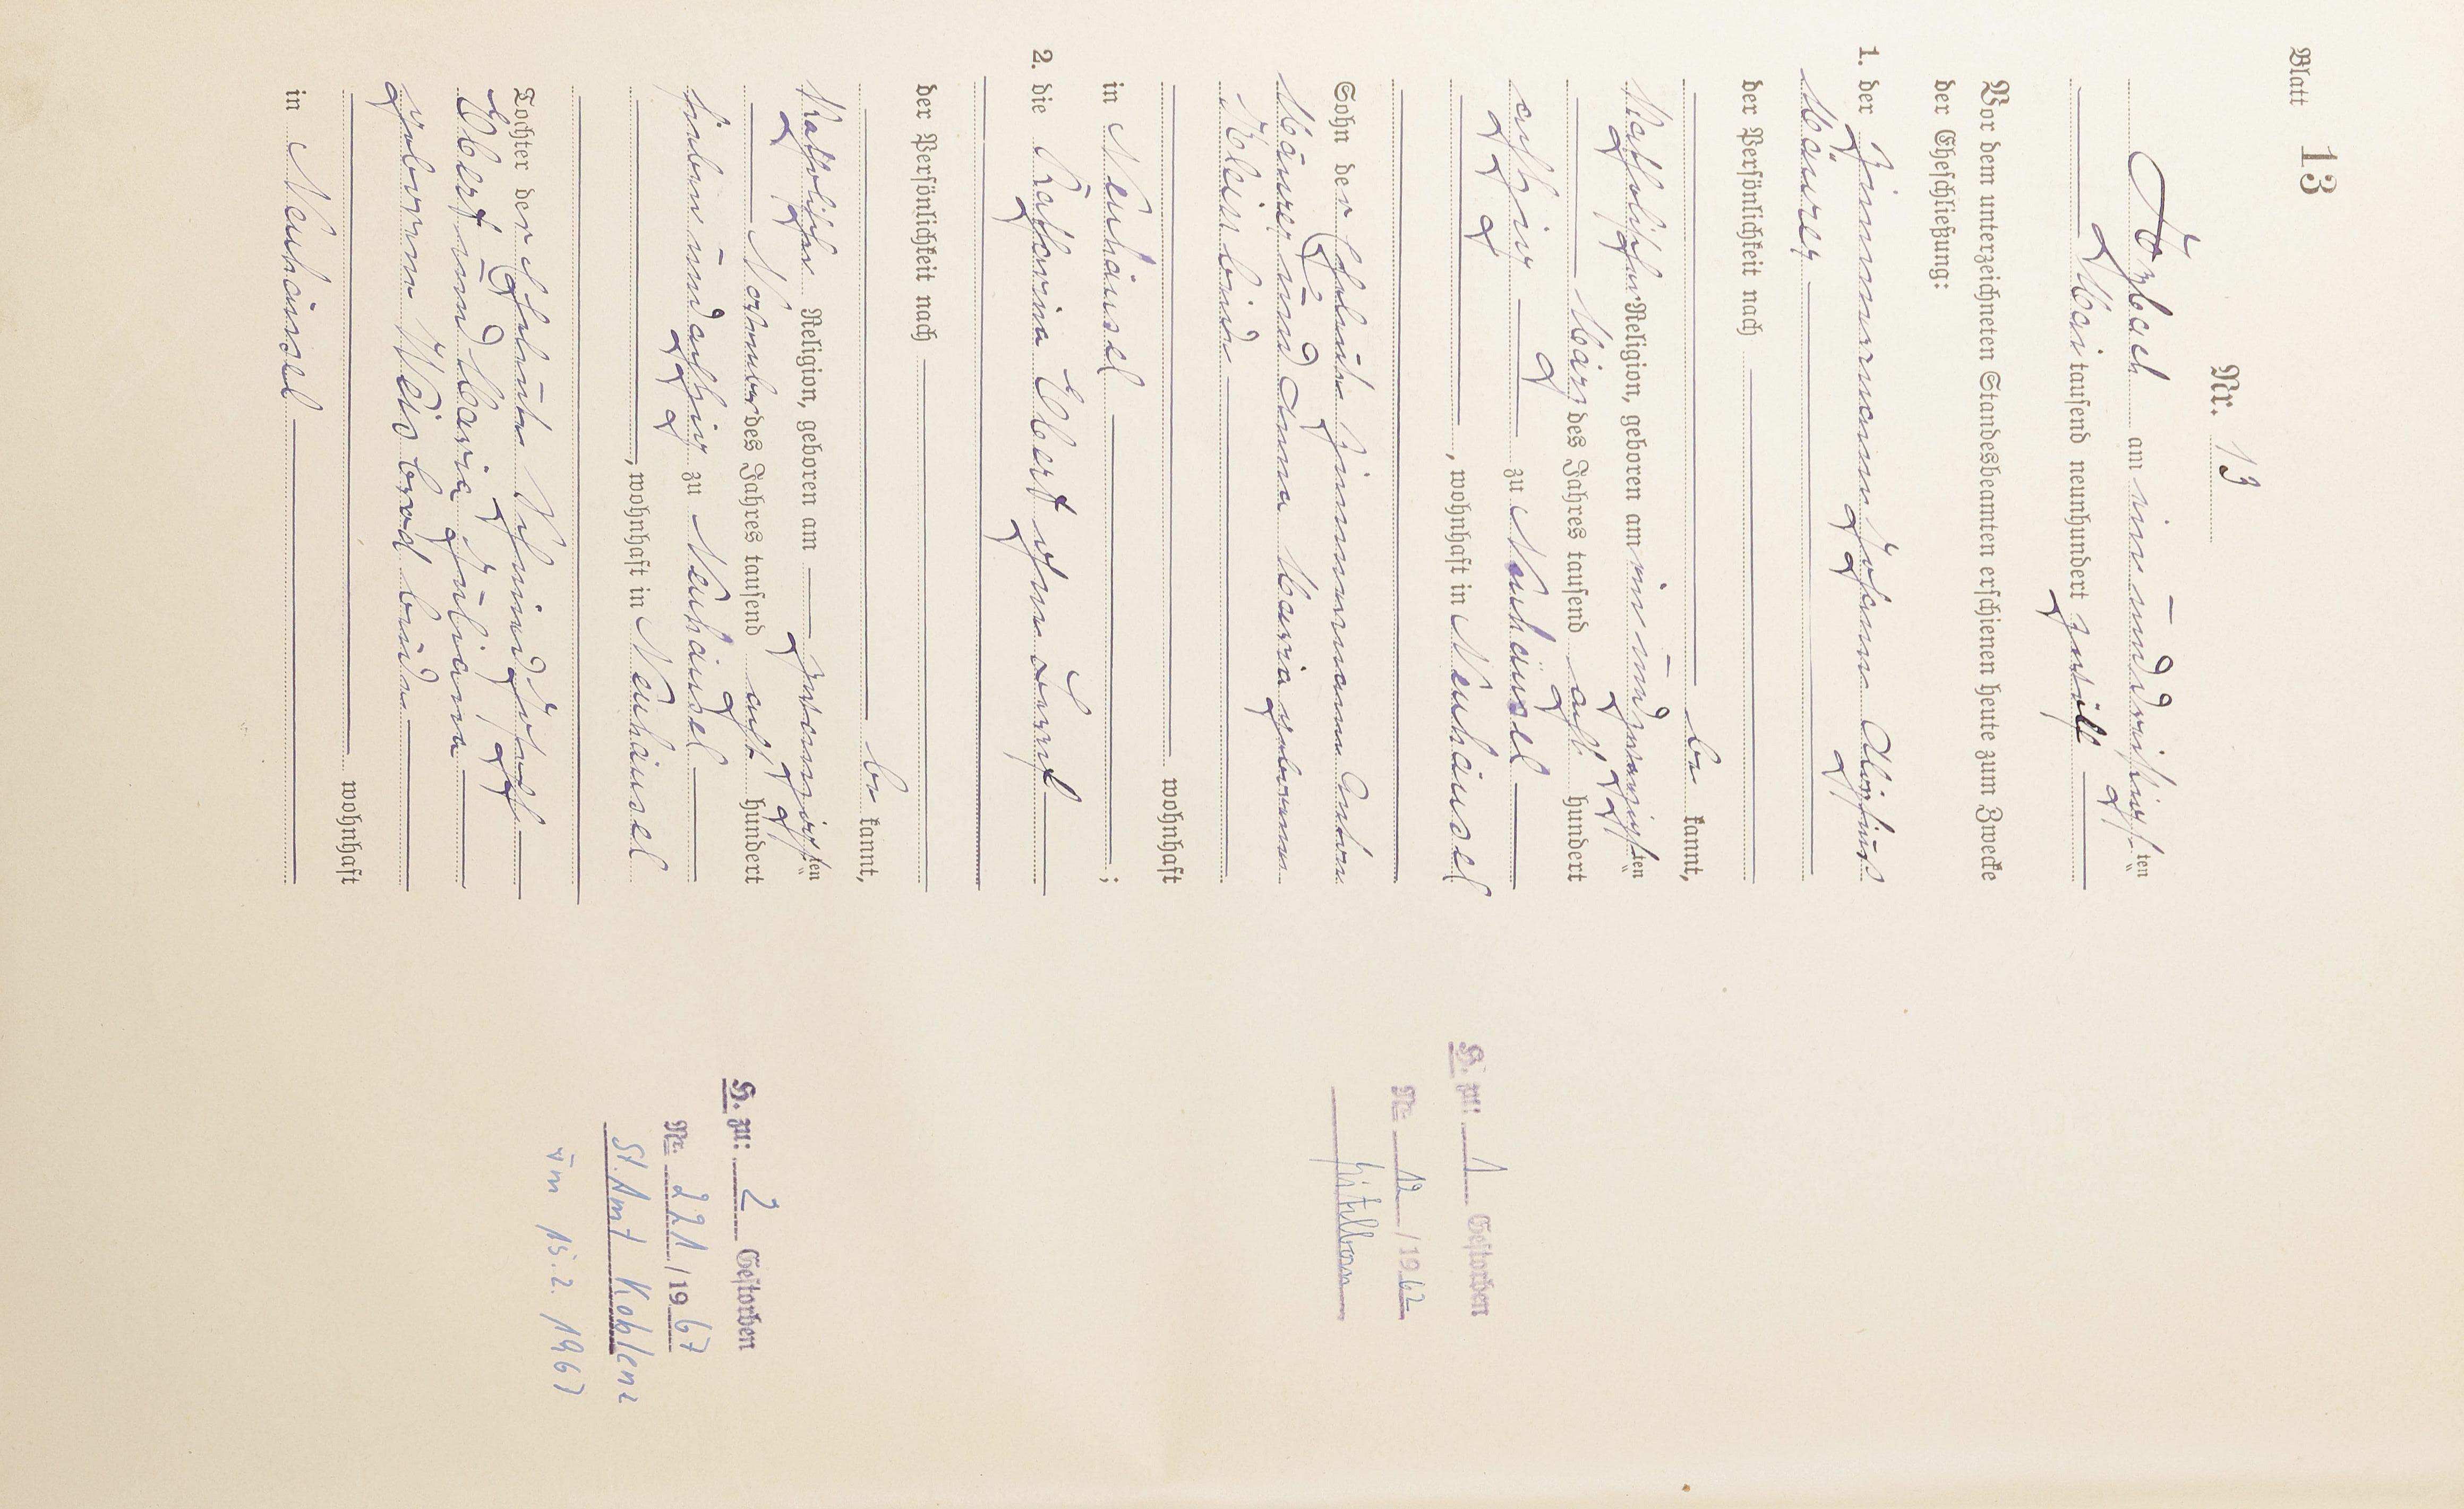 Blatt 13
Nr. 13
Arzbach am ein und dreißigsten
Mai tausend neunhundert zwölf
Vor dem unterzeichneten Standesbeamten erschienen heute zum Zwecke
der Eheschließung:
1. der Zimmermann Johann Aloisius
Maurer
der Persönlichkeit nach
be kannt,
Katholischer Religion, geboren am ein und zwanzigsten
März des Jahres tausend acht hundert
achtzig zu Neuhäusel
, wohnhaft in Neuhäusel
Sohn der Eheleute Zimmermann Anton
Maurer und Anna Maria geborenen
Klein beide
wohnhaft
in Neuhäusel ;
2. die Katharina Ebert ohne Beruf
der Persönlichkeit nach
be kannt,
Katholischer Religion, geboren am zwanzigsten
November des Jahres tausend acht hundert
sieben und achtzig zu Neuhäusel
, wohnhaft in Neuhäusel
Tochter der Eheleute Schmied Joseph
Ebert und Maria Juliana
geborenen Weisbrod beide
wohnhaft
in Neuhäusel
H. zu: 1 Gestorben
Nr. 12 / 19 62
H. zu: 2 Gestorben
Nr. 221 / 19 67
St. Amt Koblenz
am 15.2.1967